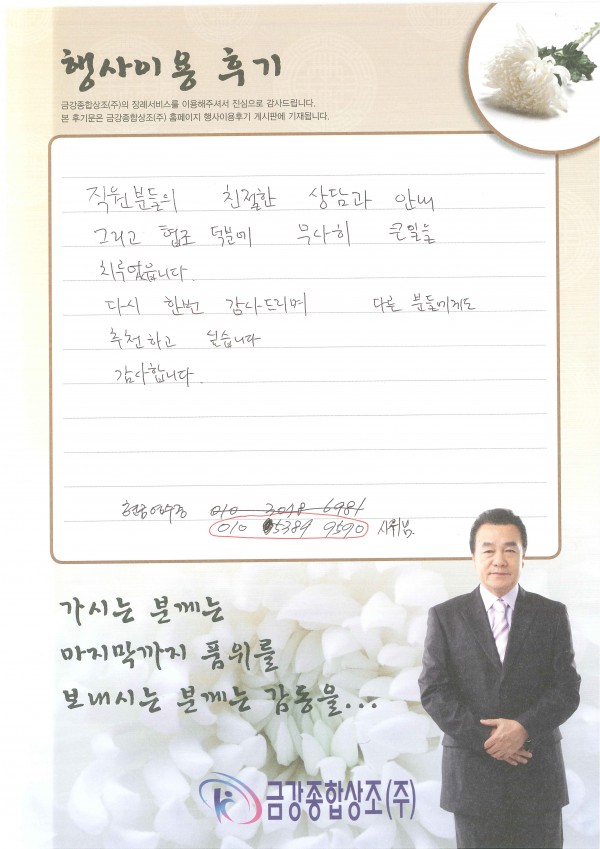 행사이용 후기
금강종합상조(주)의 장례서비스를 이용해주셔서 진심으로 감사드립니다.
본 후기문은 금강종합상조(주) 홈페이지 행사이용후기 게시판에 기재됩니다.
직원분들의 친절한 상담과 안내
그리고 협조 덕분에 무사히 큰일을
치루었읍니다.
다시 한번 감사드리며 다른 분들에게도
추천하고 싶습니다
감사합니다.
010 3048 6981
010 5384 9590 사위님.
가시는 분께는
마지막까지 품위를
보내시는 분께는 감동을...
금강종합상조(주)